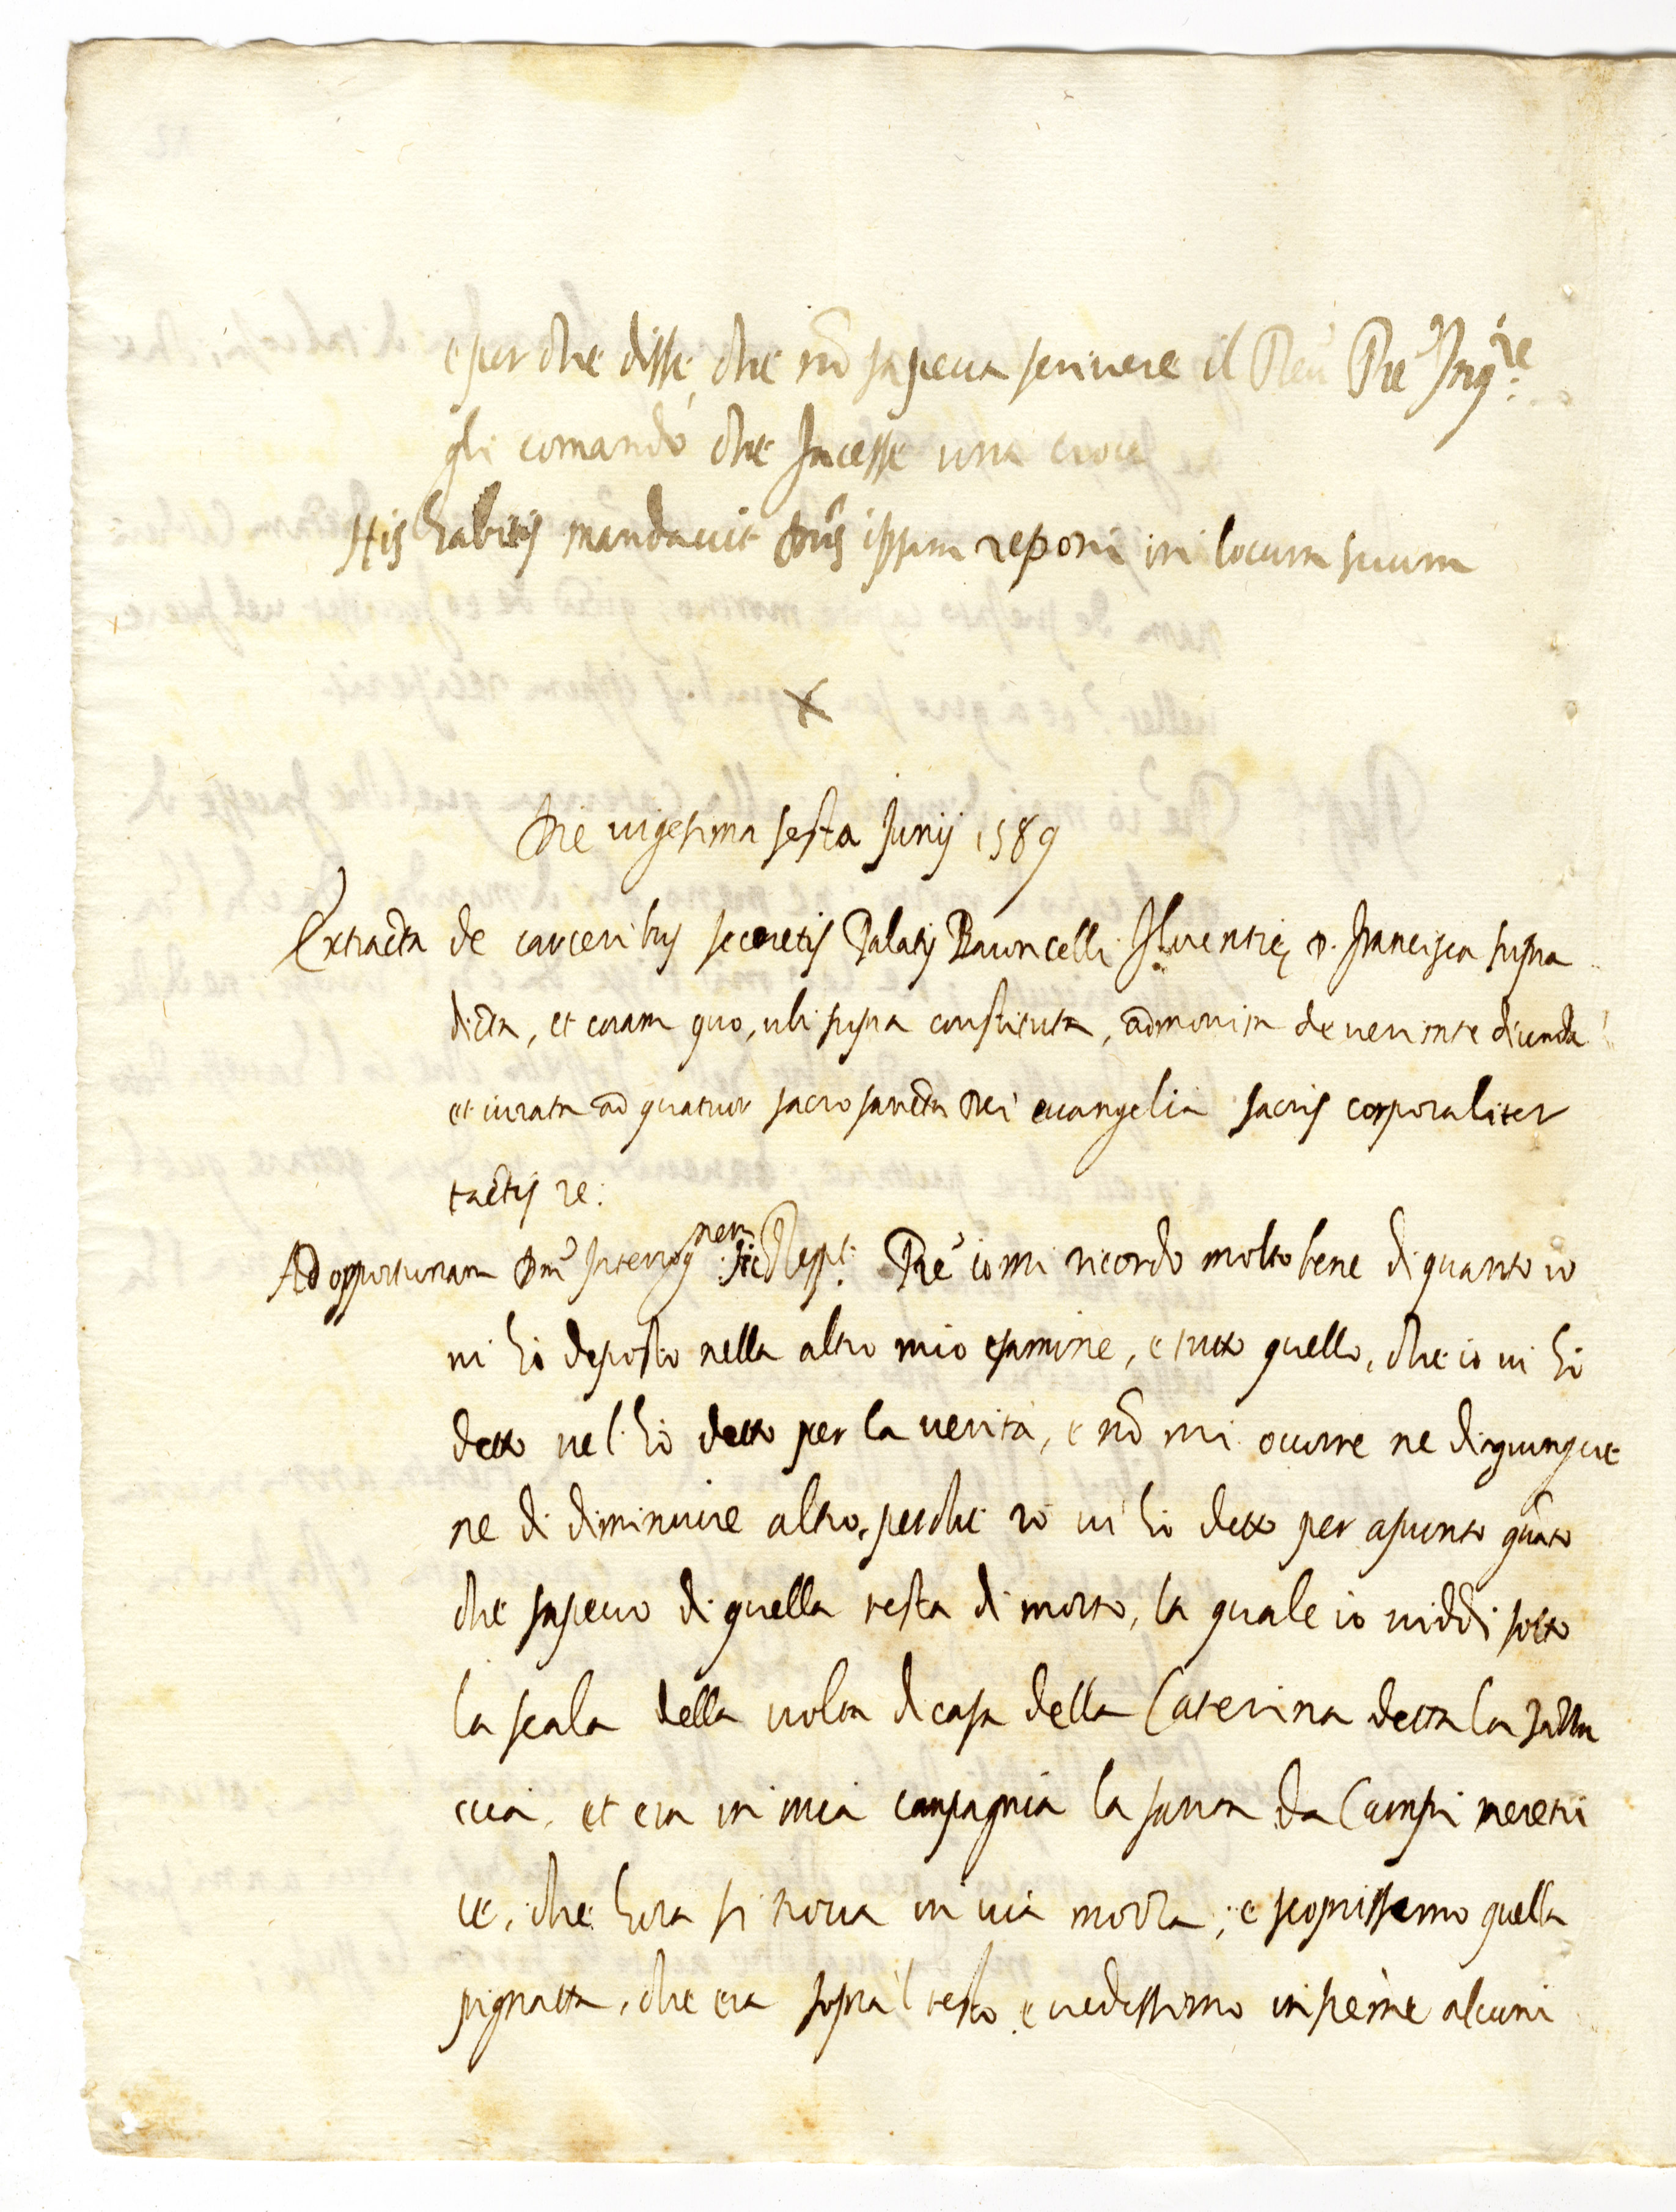 e per che disse, che nō sapeua scriuere il Reu̅ Pre' Inq.re
gli comandò che facesse una croce
His habitis mandauit Dn̅s ipsum reponi in locum suum
X
Die uigesima sesta Junij 1589
Extracta de carceribus secretis Palatij Baroncelli Florentię D. Francisca supra
dicta, et coram quo, ubi supra constituta, admonita de ueritate dicenda
et iurata ad quatuor sacrosancta Dei euangelia sacris corporaliter
tactis re:
Ad opportunam Dni̅ Interrog.nem sic Resp.t Pre' io mi ricordo molto bene di quanto io
ui hò deposto nella altro mio esamine, e tutto quello, che io ui hò
detto ue l'hò detto per la uerità, e nō mi occorre ne di giungere
ne di diminuire altro, perche io ui hò detto per apunto quāto
che sapeuo di quella testa di morto, la quale io uiddi sotto
la scala della uolta di casa della Caterina detta la
ccia, et era in mia compagnia la santa da Campi meretri
ce, che hora si troua in uia mozza; e scoprissimo quella
pignatta, che era sopra'l testo e uedessimo insieme alcuni